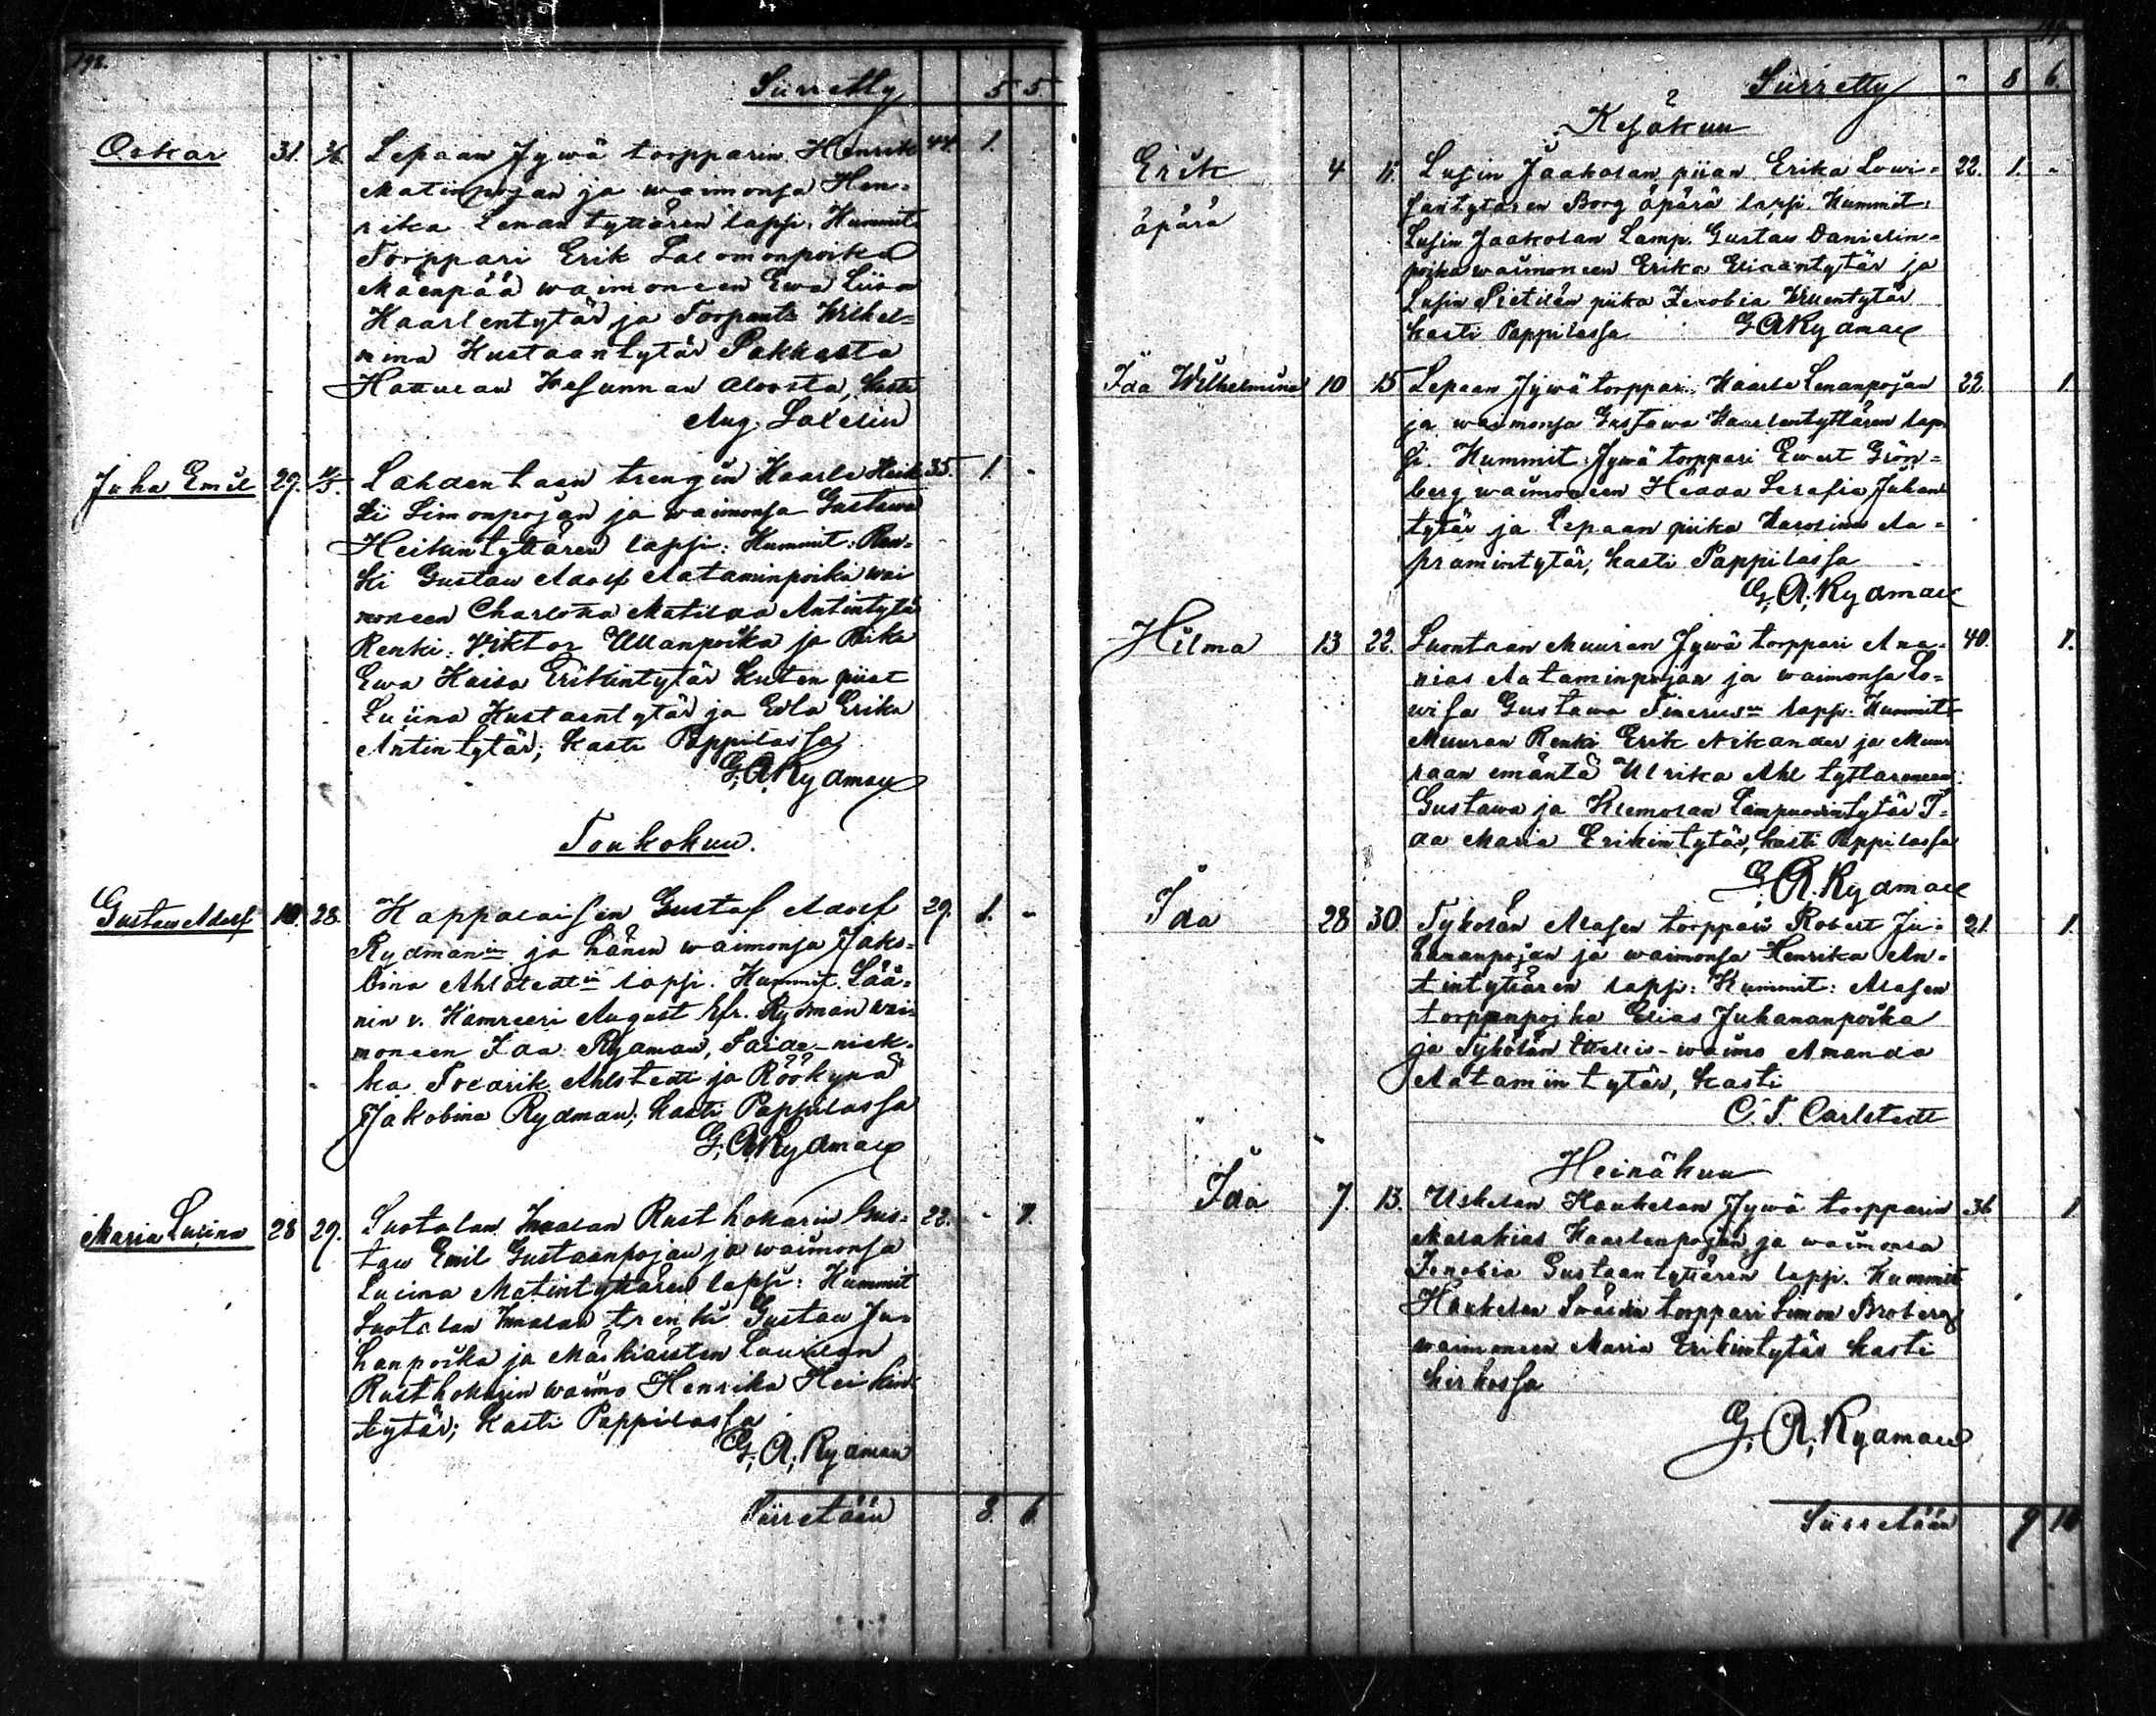 198.
Siirretty 5 5
Oskar 31. Lepaan Jywä torpparin Henrik 44. 1.
Matinpojan ja waimonsa Hen-
rika Lenan tyttären lapsi. Kummit:
Torppari Erik Salomonpoika
Mäenpää waimoneen Ewa Liisa
Haarlentytär ja Wilhel=
mina Kustaantytär Pakkasta
Hauhan alosta, kasti
Aug. Laxelin
Juha Emil 29. Lahdentaan trengin Kaarle Heik 35. 1.
ki Simonpojan ja waimonsa Gustawa
Heikintyttären lapsi: Kummit: Ren-
ki Gustaw Adolf Aataminpoika wai
moneen Charlotta Matilda Antintytär
Renki: Wiktor Ullanpoika ja Piika
Ewa Kaisa Erikintytär kuten piiat
Lusina Kustaantytär ja Edla Erika
Antintytär; kasti Pappilassa
G. A. Rydman
Toukokuu.
Gustaw Adolf 10. 28. Kappalaisen Gustaf Adolf 29. 1. "
Rydmanin ja hänen waimonsa Jako=
bina Ahlstedtin lapsi. Kummit. Lää=
nin v. Kamreeri August Rydman wai=
moneen Ida Rydman, Taide-niek-
ka Fredrik Ahlstedt ja Röökynä
Jakobina Rydman; kasti Pappilassa
G. A. Rydman
Maria Lusina 28 29. Suotalan Innalan Rusthollarin Gus= 22. " 1.
taw Emil Gustaanpojan ja waimonsa
Lusina Matintyttären lapsi: Kummit
Suotalan Innalan trenki Gustaw Ju=
hanpoika ja Mäskiäisten Laurilan
Rusthollarin waimo Henrika Heikin=
tytär; kasti Pappilassa
G. A. Rydman
Siirretään 8. 6
Siirretty " 8 6.
Kesäkuu
Erik 4 11. Lusin Jaakolan piian Erika Lowi= 22. 1. "
äpärä santytären Borg äpärä lapsi. Kummit:
Lusin Jaakolan Lamp. Gustaw Danielin-
poika waimoneen Erika Elinantytär ja
Lusin Pietilän piika Zenobia Villentytär
kasti Pappilassa G A Rydman
Ida Wilhelmina 10 15 Lepaan Jywä torppari Kaarle Lenanpojan 22 1.
ja waimonsa Gustawa Kaarlentyttären lap-
si. Kummit: Jywä torppari Ewert Grön=
berg waimoneen Hedda Serafia Juhan
tytär ja Lepaan piika Karolina Aa=
pramintytär, kasti Pappilassa
G. A. Rydman
Hilma 13 22. Luontaan Muuran Jywä torppari Ana= 40. 1.
nias Aataminpojan ja waimonsa Lo=
wisa Gustawa lapsi. Kummit:
Muuran Renki Erik Nikander ja Muu
raan emäntä Ulrika Ahl tyttäroneen
Gustawa ja Klemolan Lampuodintytär I=
da Maria Erikintytär, kasti Pappilassa
G. A. Rydman
Ida 28 30. Tykölän Alasen torppari Robert Ju= 21. 1.
hananpojan ja waimonsa Henrika An=
tintyttären lapsi: Kummit: Alasen
torpanpojka Elias Juhananpoika
ja Tykölän Itellis-waimo Amanda
Aatamintytär, kasti
C. F. Carlstedt
Heinäkuu
Ida 7. 13. Uskilan Haukelan Jywä torpparin 36 1
Malakias Kaarlenpojan ja waimonsa
Zenobia Gustaantyttären lapsi. Kummit
Haukelan torppari Simon Broberg
waimoneen Maria Erikintytär kasti
kirkossa
G. A. Rydman
Siirretään 9 10